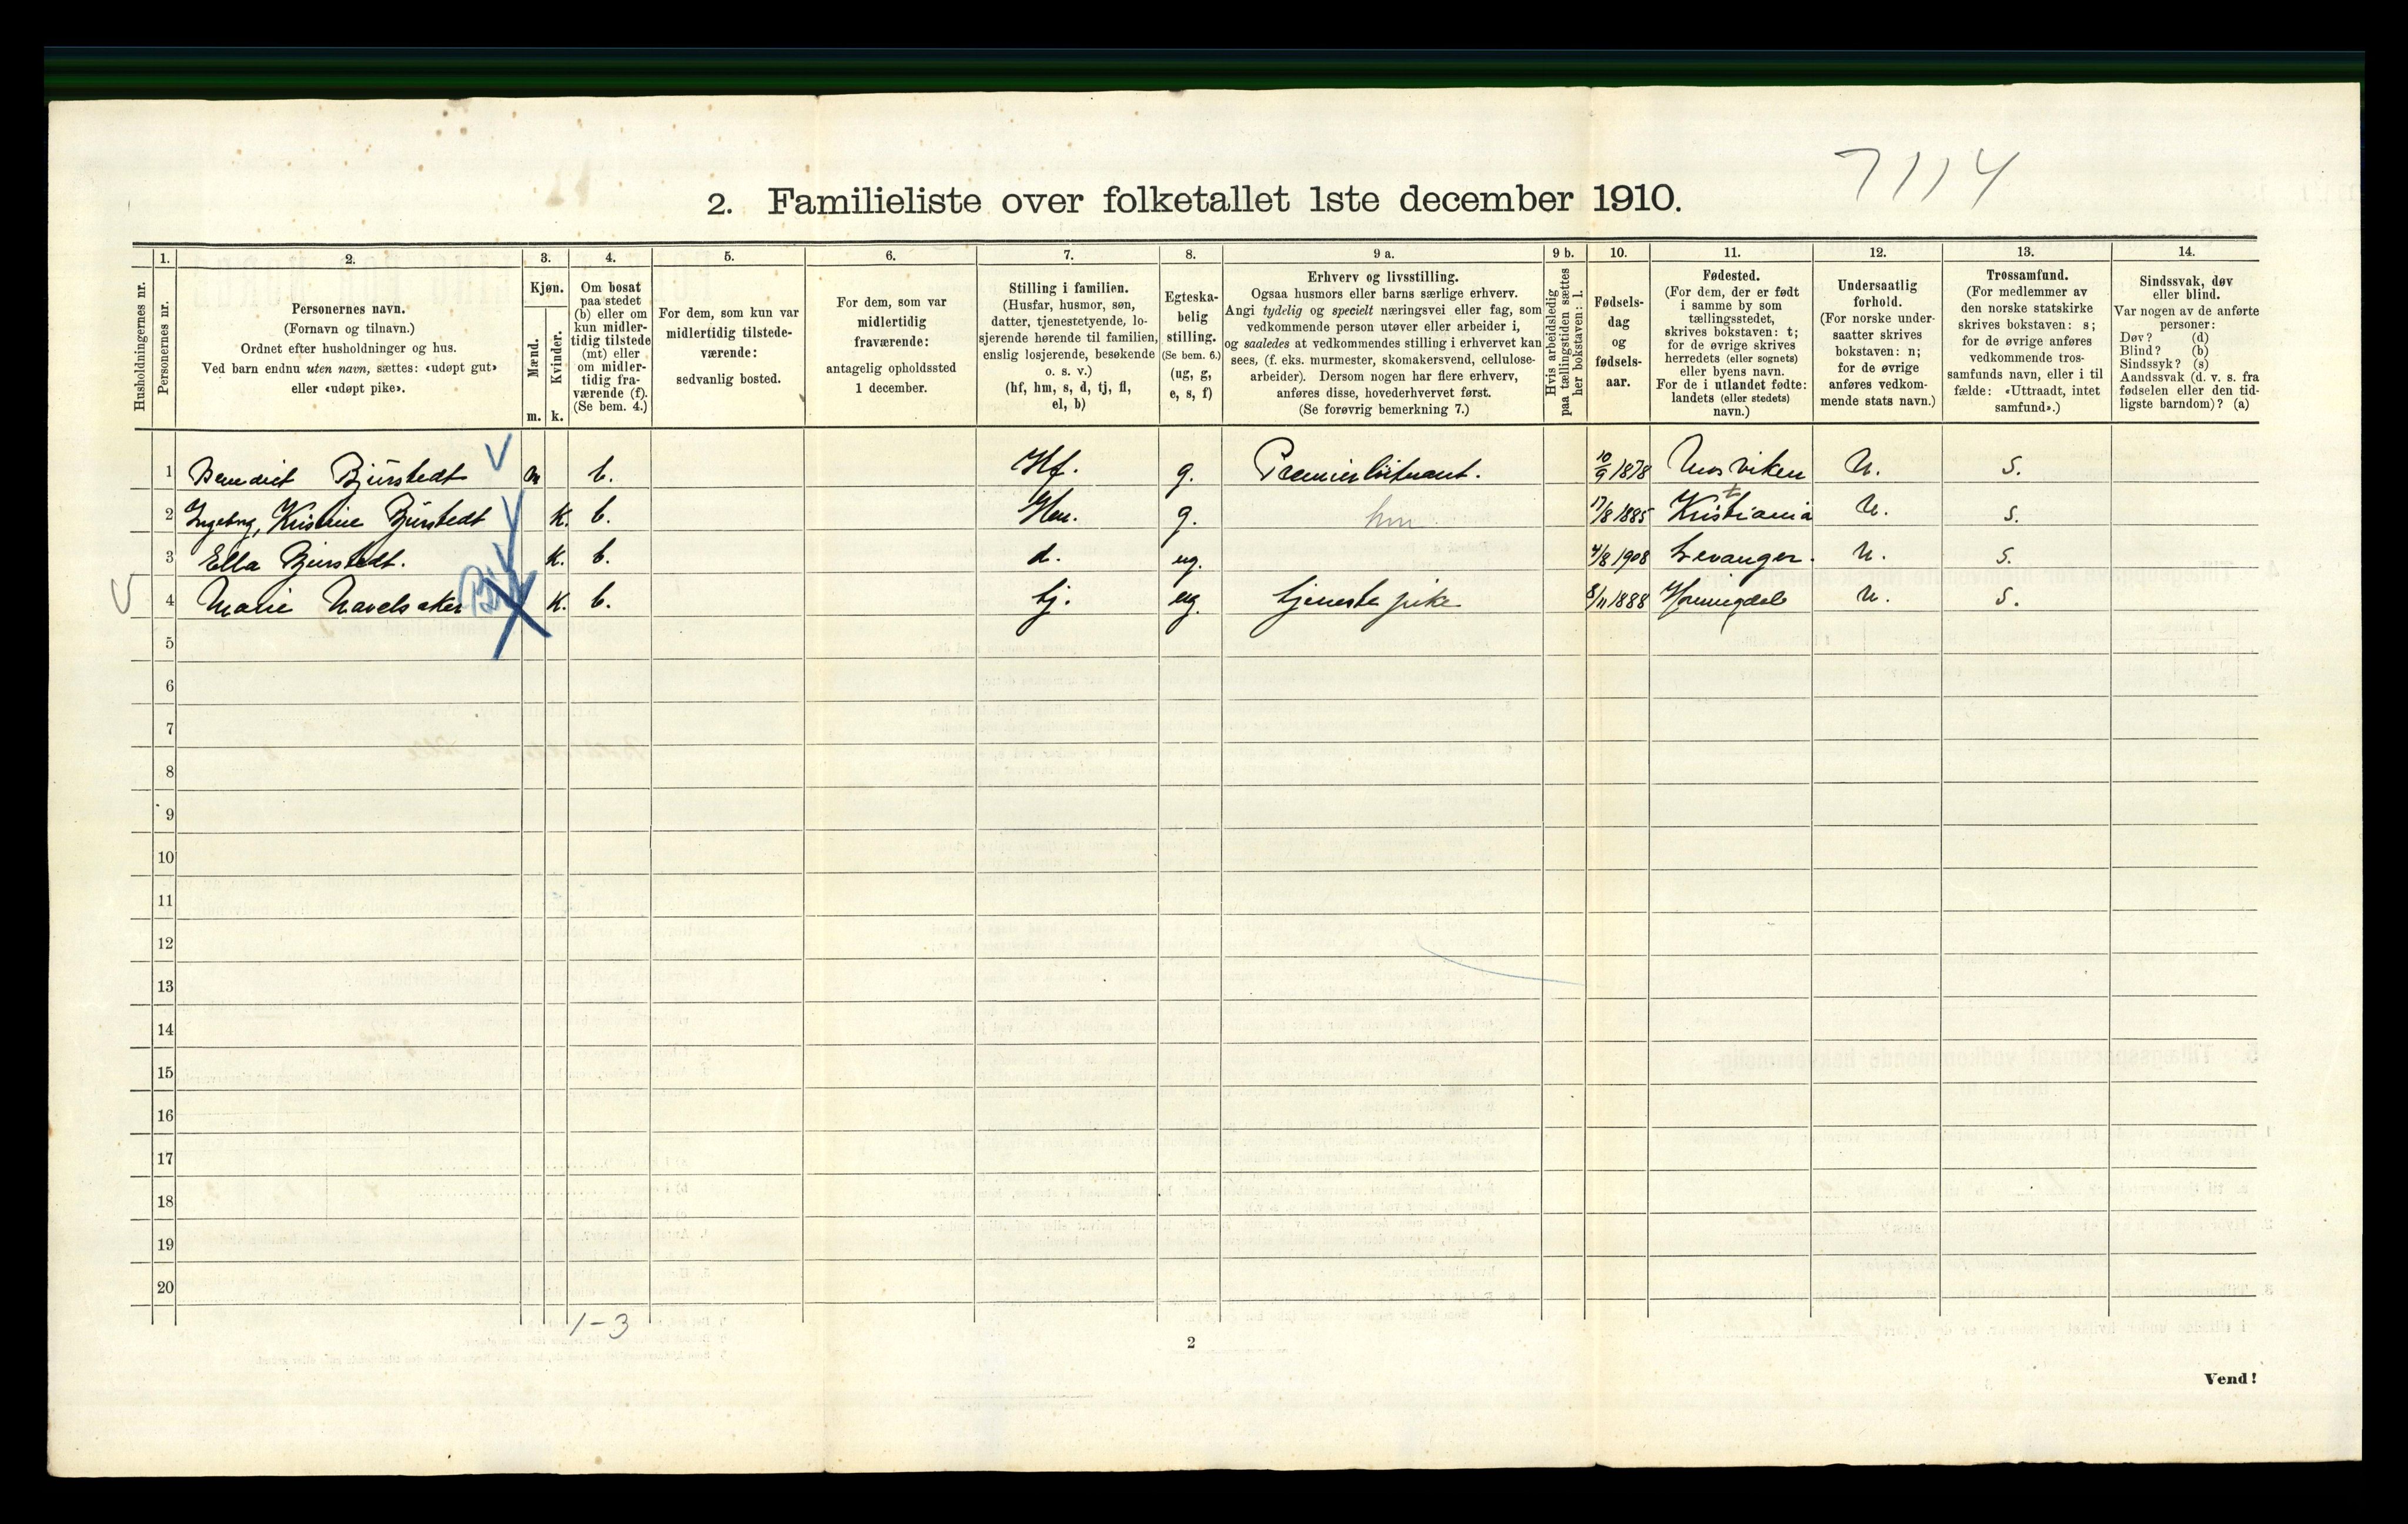 7114
2. Familieliste over folketallet 1ste december 1910.
Husholdningernes nr.
1.
Personernes nr.
2.
Personernes navn.
(Fornavn og tilnavn.)
Ordnet efter husholdninger og hus.
Ved barn endnu uten navn, sættes: «udøpt gut»
eller «udøpt pike».
3.
Kjøn.
Mænd.
m.
Kvinder.
k.
4.
Om bosat
paa stedet
(b) eller om
kun midler-
tidig tilstede
(mt) eller
om midler-
tidig fra-
værende (f).
(Se bem. 4.)
5.
For dem, som kun var
midlertidig tilstede-
værende:
sedvanlig bosted.
6.
For dem, som var
midlertidig
fraværende:
antagelig opholdssted
1 december.
7.
Stilling i familien.
(Husfar, husmor, søn,
datter, tjenestetyende, lo-
sjerende hørende til familien,
enslig losjerende, besøkende
o. s. v.)
(hf, hm, s, d, tj, fl,
el, b)
8.
Egteska-
belig
stilling.
(Se bem. 6.)
(ug, g,
e, s, f)
9 a.
Erhverv og livsstilling.
Ogsaa husmors eller barns særlige erhverv.
Angi tydelig og specielt næringsvei eller fag, som
vedkommende person utøver eller arbeider i,
og saaledes at vedkommendes stilling i erhvervet kan
sees, (f. eks. murmester, skomakersvend, cellulose-
arbeider). Dersom nogen har flere erhverv,
anføres disse, hovederhvervet først.
(Se forøvrig bemerkning 7.)
9 b.
Hvis arbeidsledig
paa tællingstiden sættes
her bokstaven: l.
10.
Fødsels-
dag
og
fødsels-
aar.
11.
Fødested.
(For dem, der er født
i samme by som
tællingsstedet,
skrives bokstaven: t;
for de øvrige skrives
herredets (eller sognets)
eller byens navn.
For de i utlandet fødte:
landets (eller stedets)
navn.)
12.
Undersaatlig
forhold.
(For norske under-
saatter skrives
bokstaven: n;
for de øvrige
anføres vedkom-
mende stats navn.)
13.
Trossamfund.
(For medlemmer av
den norske statskirke
skrives bokstaven: s;
for de øvrige anføres
vedkommende tros-
samfunds navn, eller i til
fælde: «Uttraadt, intet
samfund».)
14.
Sindssvak, døv
eller blind.
Var nogen av de anførte
personer:
Døv? (d)
Blind? (b)
Sindssyk? (s)
Aandssvak (d. v. s. fra
fødselen eller den tid-
ligste barndom)? (a)
1 Benedict Bjürstedt m b. Hf. g. Premierløitnant. 10/9 1878 Mosviken n. s.
2 Ingebrg, Kristine Bjürstedt k. b. Hm. g. hm 17/8 1885 Kristiania t n. s.
3 Ella Bjürstedt. k. b. d. ug. 4/8 1908 Levanger. n. s.
4 Marie Navelsaker k. b. tj. ug. tjeneste pike 8/11 1888 n. s.
5
6
7
8
9
10
11
12
13
14
15
16
17
18
19
20
1-3
2
Vend!